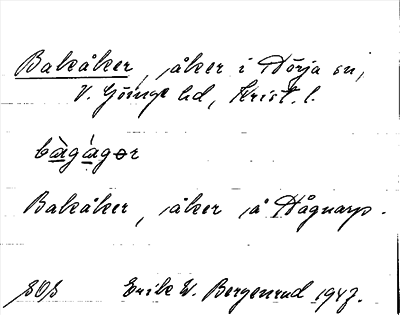 Bakåker, åker i Nörja sn,
V. Göinge hd, Krist. l.
bàgágər
Bakåker, åker å Hågnarp.
SOS Erik W. Bergenrud 1947.